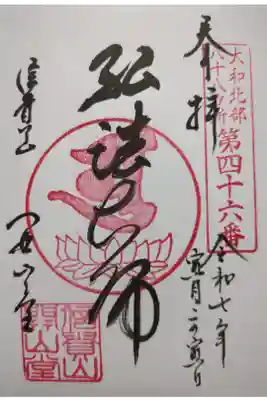 大和北部
八十八ヶ所
第四十六番
奉拝
令和七年
寅月二の寅日
弘法大師
信貴山
開山堂
信貴山
開山堂